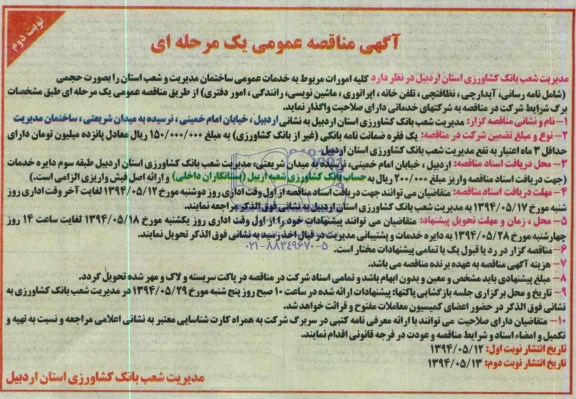 نوبت دوم
آگهی مناقصه عمومی یک مرحله ای
مدیریت شعب بانک کشاورزی استان اردبیل در نظر دارد کلیه امورات مربوط به خدمات عمومی ساختمان مدیریت و شعب استان را بصورت حجمی
(شامل نامه رسانی، آبدارچی، نظافتچی، تلفن خانه، اپراتوری، ماشین نویسی، رانندگی، امور دفتری) از طریق مناقصه عمومی یک مرحله ای طبق مشخصات
برگ شرایط شرکت در مناقصه به شرکتهای خدماتی دارای صلاحیت واگذار نماید.
۱- نام و نشانی مناقصه گزار: مدیریت شعب بانک کشاورزی استان اردبیل به نشانی اردبیل، خیابان امام خمینی، نرسیده به میدان شریعتی، ساختمان مدیریت
۲- نوع و مبلغ تضمین شرکت در مناقصه: یک فقره ضمانت نامه بانکی (غیر از بانک کشاورزی) به مبلغ ۱۵۰/۰۰۰/۰۰۰ ریال معادل پانزده میلیون تومان دارای
حداقل ۳ ماه اعتبار به نفع مدیریت شعب بانک کشاورزی استان اردبیل
۳- محل دریافت اسناد مناقصه: اردبیل، خیابان امام خمینی، نرسیده به میدان شریعتی، مدیریت شعب بانک کشاورزی استان اردبیل طبقه سوم دایره خدمات
(جهت دریافت اسناد مناقصه واریز مبلغ ۲۰۰/۰۰۰ ریال به حساب بانک کشاورزی شعبه اردبیل (بستانکاران داخلی) و ارائه اصل فیش واریزی الزامی است.)
۴- مهلت دریافت اسناد مناقصه: متقاضیان می توانند جهت دریافت اسناد مناقصه از اول وقت اداری روز دوشنبه مورخ ۱۳۹۴/۰۵/۱۲ لغایت آخر وقت اداری روز
شنبه مورخ ۱۳۹۴/۰۵/۱۷ به مدیریت شعب بانک کشاورزی استان اردبیل به نشانی فوق الذکر مراجعه نمایند.
۵- محل، زمان و مهلت تحویل پیشنهاد: متقاضیان می توانند پیشنهادات خود را از اول وقت اداری روز یکشنبه مورخ ۱۳۹۴/۰۵/۱۸ لغایت ساعت ۱۴ روز
چهارشنبه مورخ ۱۳۹۴/۰۵/۲۸ به دایره خدمات و پشتیبانی مدیریت در قبال اخذ رسید به نشانی فوق الذکر تحویل نمایند.
۰۲۱-۸۸۳۴۹۶۷۰-۵
۶- مناقصه گزار در رد یا قبول یک یا تمامی پیشنهادات مختار است.
۷- هزینه آگهی مناقصه به عهده برنده مناقصه می باشد.
۸- مبلغ پیشنهادی باید مشخص و معین و بدون ابهام باشد و تمامی اسناد شرکت در مناقصه در پاکت سربسته و لاک و مهر شده تحویل گردد.
۹- تاریخ و محل برگزاری جلسه بازگشایی پاکتها: پیشنهادات ارائه شده در ساعت ۱۰ صبح روز پنج شنبه مورخ ۱۳۹۴/۰۵/۲۹ در مدیریت شعب بانک کشاورزی به
نشانی فوق الذکر در حضور اعضای کمیسیون معاملات مفتوح و قرائت خواهد شد.
۱۰- متقاضیان دارای صلاحیت می توانند با ارائه معرفی نامه کتبی در سربرگ شرکت به همراه کارت شناسایی معتبر به نشانی اعلامی مراجعه و نسبت به تهیه و
تکمیل و امضاء اسناد و شرایط مناقصه و عودت در فرجه قانونی اقدام نمایند.
تاریخ انتشار نوبت اول: ۱۳۹۴/۰۵/۱۲
تاریخ انتشار نوبت دوم: ۱۳۹۴/۰۵/۱۳
مدیریت شعب بانک کشاورزی استان اردبیل